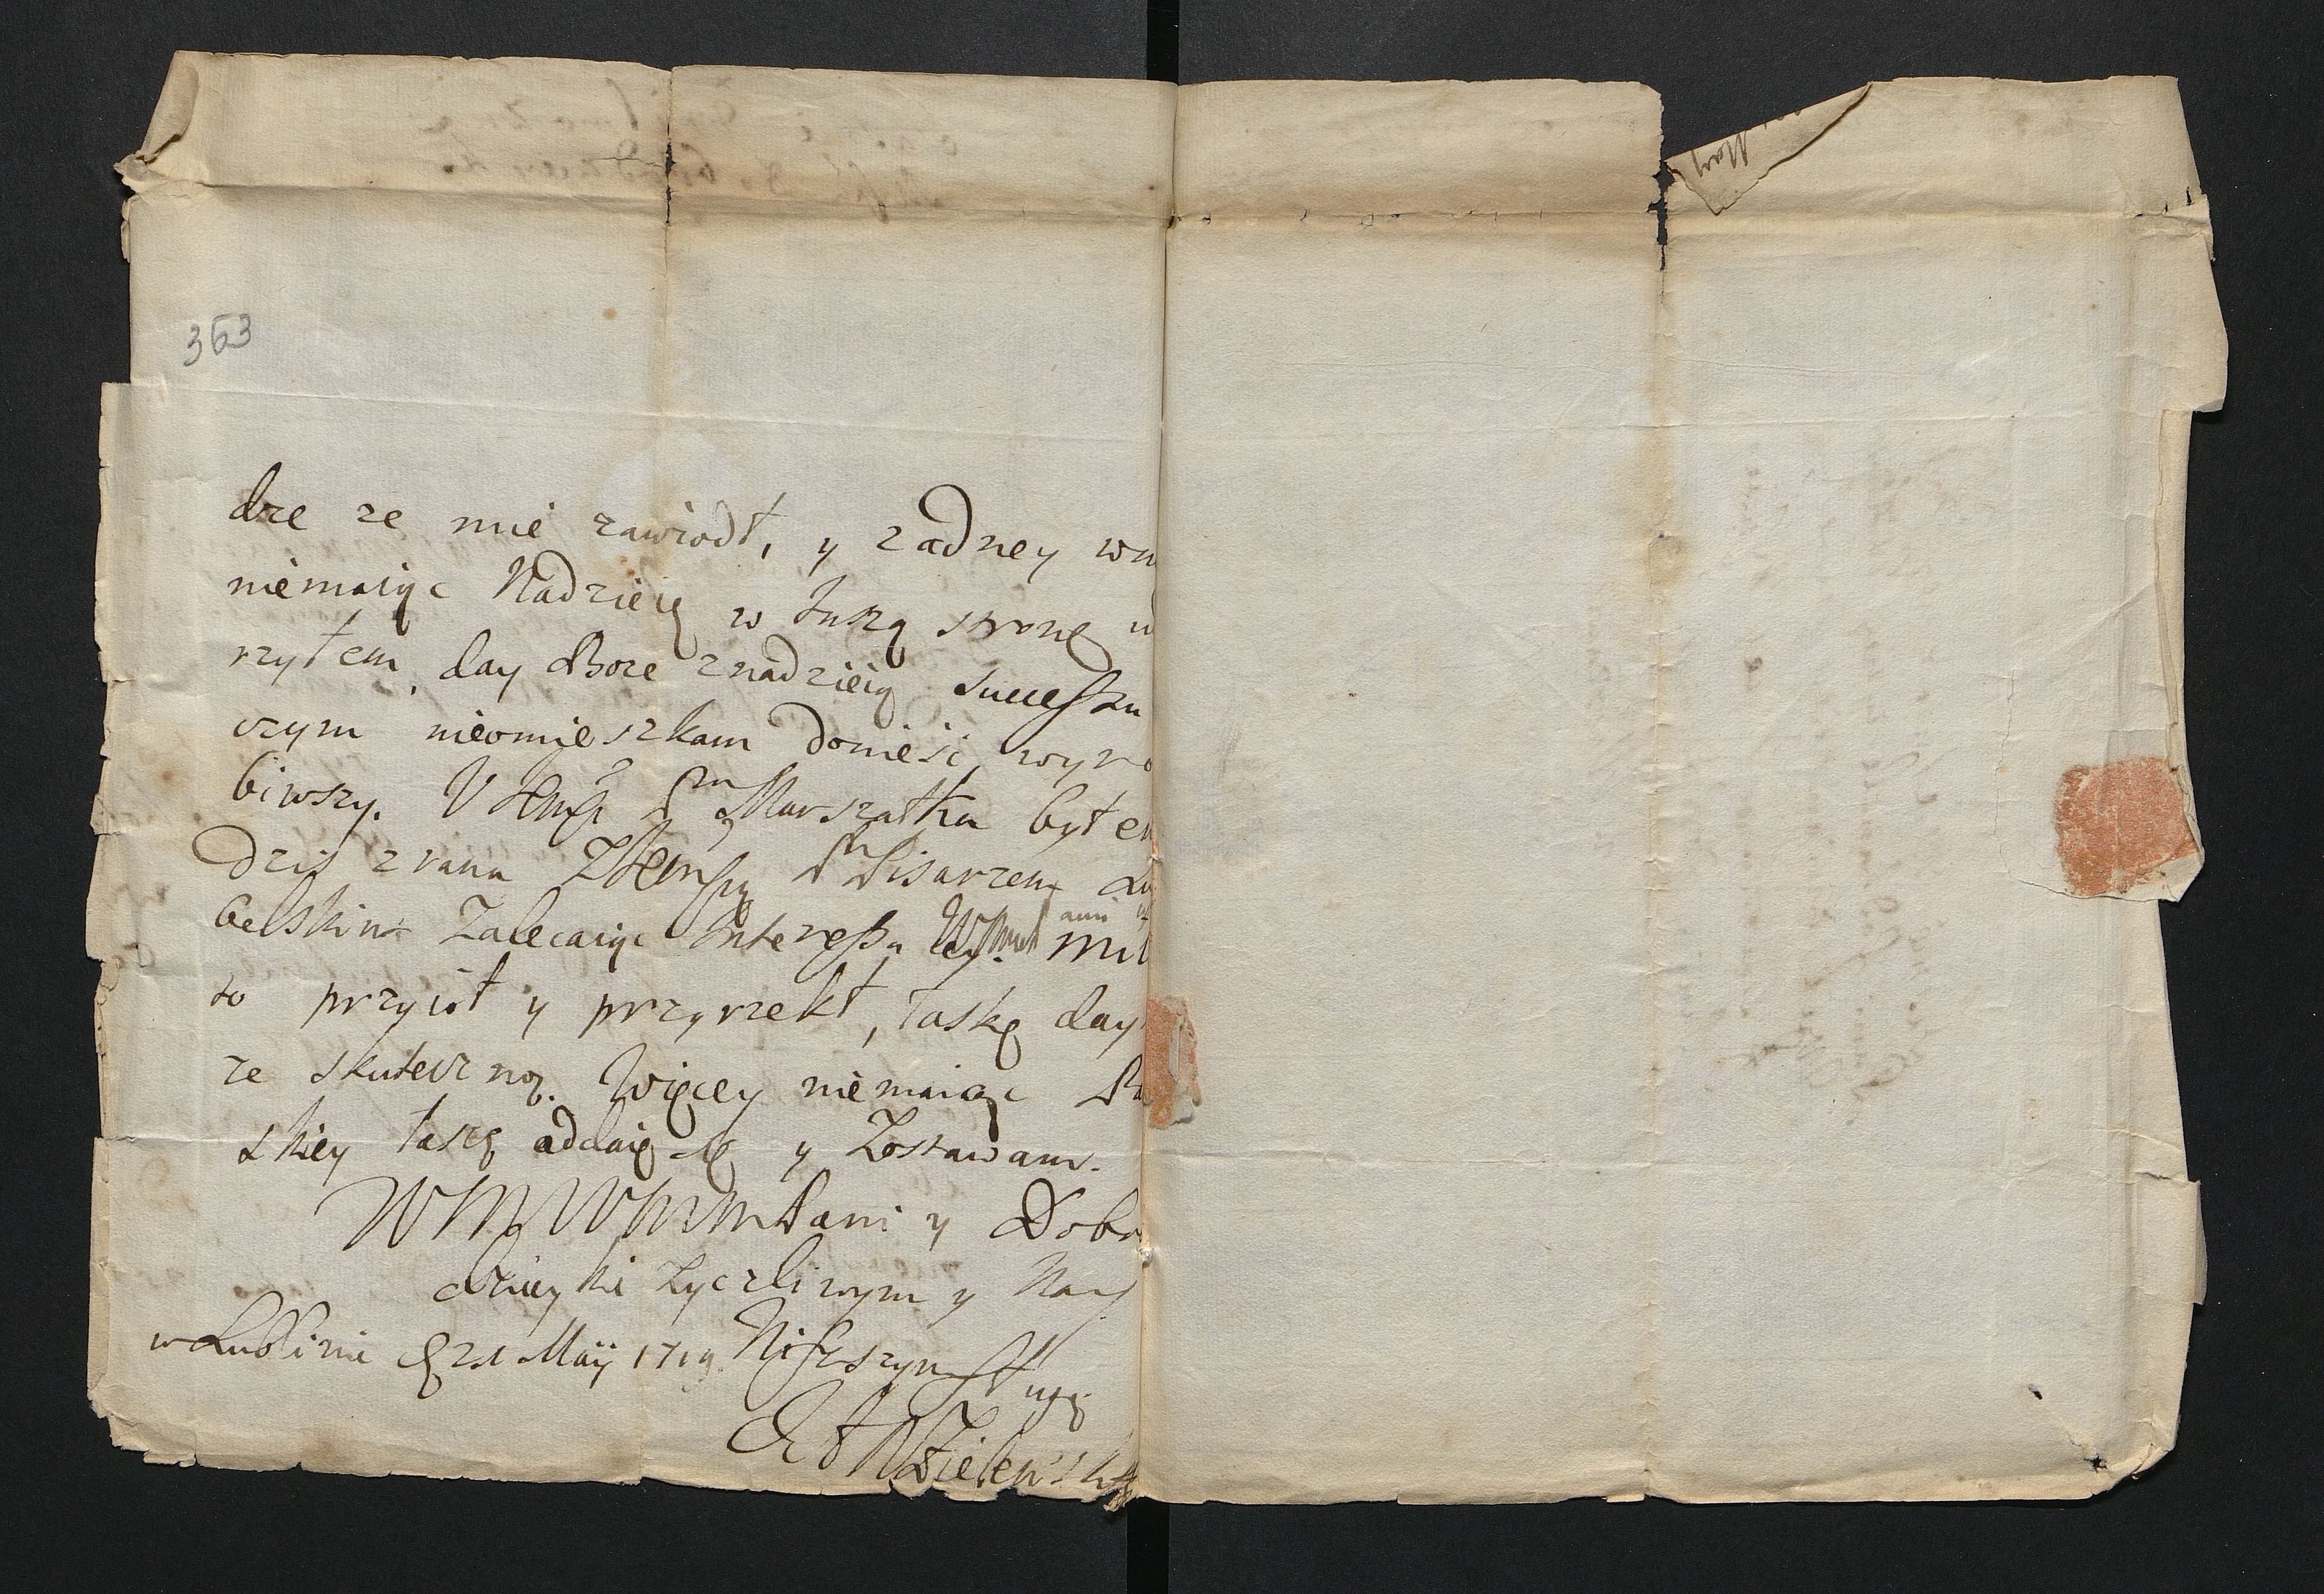 363
dze ze mie zawiodł, y zadney
niemaiąc Nadzieię w tuszą stronę
rzyłem, day Boze znadzieią successu
czym nieomieszkam donieść wyro
biwszy. V Jemći Pm Marszałka byłem
dzis z rana ZJemscią Pm Pisarzem Lu
belskim Zalecaiąc Interessa
to przyioł y przyrzekł, łaskę day
ze skuteczną. Więcey niemaiąc Pa
skiey łascę oddaię się y Zostawam.
WMMWMM Pani y Dobro
dzieyki zyczliwym y Nay
w Lublinie d 21 Maij 1719 Niższym sługą